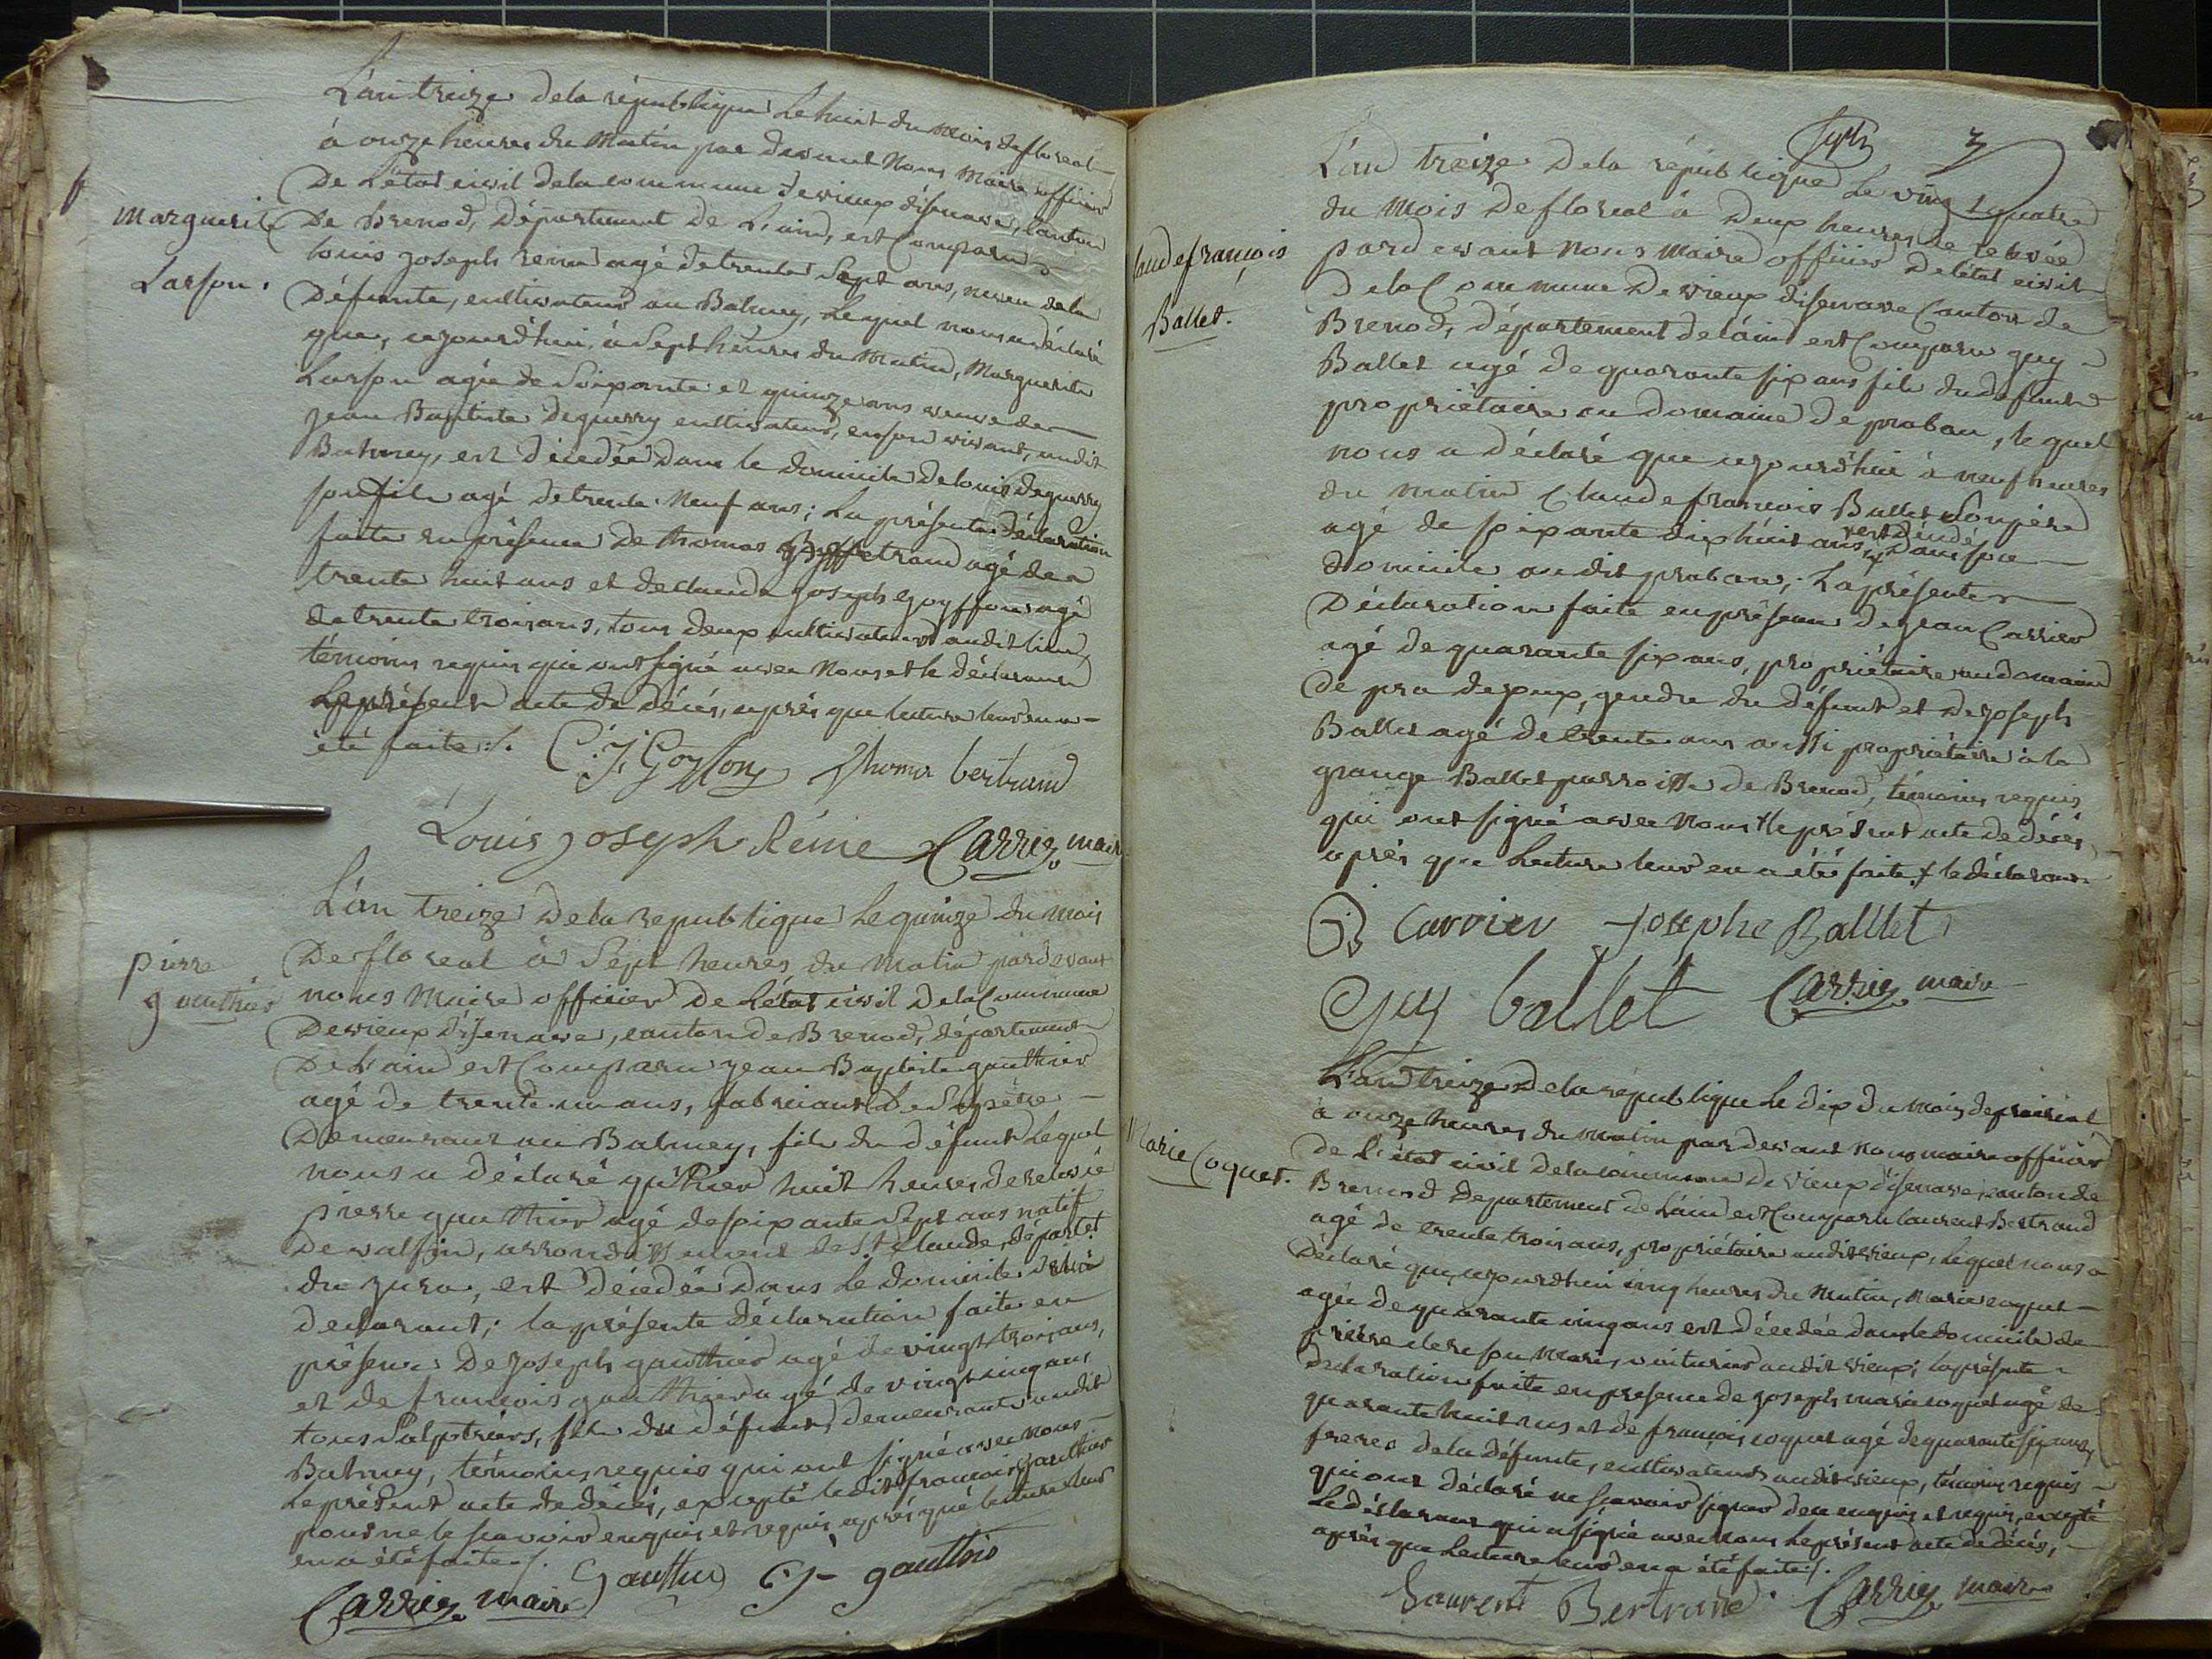 L'an treize de la république le huit du mois de floreal
à onze heures du matin par devant nous maire officier
De L'état civil de la commune de vieux d'isenave, canton
De Brenod, département de L'ain, est Comparu
louis joseph reme agé de trente sept ans, neveu de la
Défunte, cultivateur au Balmey, Lequel nous a déclaré
que, cejourd'hui, à sept heures du matin, Marguerite
Larson agée de soixante et quinze ans veuve de
jean Baptiste deguerry cultivateur, en son vivant, audit
Balmey, est décédée dans le domicile de louis deguerry
son fils agé de trente neuf ans; La présente déclaration
faite en présence de thomas Bertrand agé de
trente huit ans et de claude joseph goyffon agé
de trente trois ans, tous deux cultivateurs audit lieu,
témoins requis qui ont signé avec nous et le déclarant
Le présent acte de décès, après que lecture leur en a
été faite ./.
Marguerite
Larson.
C. J. Goyffon Thomas bertrand
Louis joseph Réme Carrier maire
L'an treize de la republique le quinze du mois
De floreal à sept heures du matin pardevant
nous Maire officier de L'état civil de la Commune
De vieux d'isenave, canton de Brenod, département
De L'ain est Comparu jean Baptiste gauthier
agé de trente un ans, fabricant de salpêtre
Demeurant au Balmey, fils du défunt Lequel
nous a déclaré qu'hier huit heures de relevée
pierre gauthier agé de soixante sept ans natif
de valfin, arrondissement de St Claude, départet
du jura, est décédé dans le domicile dudit
declarant; la présente déclaration faite en
présence De joseph gauthier agé de vingt trois ans,
et de françois gauthier agé de vingt cinq ans
tous salpétriers, fils du défunt, demeurants audit
Balmey, témoins requis qui ont signé avec nous
le présent acte de décès, excepté ledit françois gauthier
pour ne le scavoir enquis et requis après que lecture leur
en a été faite ./.
pierre
gauthier
Gauthier C. J. gauthier
Carrier maire
sept 7
L'an treize de la république Le vingt quatre
du mois De floreal à Deux heures de relevée
pardevant nous Maire officier de létat civil
De la Commune De vieux d'isenave Canton de
Brenod, département de láin est Comparu guy
Ballet agé de quarante six ans fils du défunt
propriétaire au domaine de praban, lequel
nous a déclaré que cejourd'hui à neuf heures
du matin Claude françois Ballet son père
agé de soixante dix huit ans, x est décédé dans son
domicile audit praban; La présente
Déclaration faite en présence de jean Carrier
agé de quarante six ans, propriétaire au domaine
de pra gendre du défunt et De joseph
Ballet agé de trente ans aussi propriétaire à la
grange Ballet parroisse de Brenod, témoins requis
qui ont signé avec nous x le présent acte de décès
après que Lecture leur en a été faite x le déclarant
aude françois
Ballet.
J Carrier Josephe Balllet
Guy ballet Carrier maire
L'an treize de la république le dix du mois de prairial
à onze heures du matin par devant nous maire officier
de L'état civil de la commune de vieux d'isenave, canton de
Brenod Département de L'ain est Comparu laurent Bertrand
agé de trente trois ans, propriétaire audit vieux, Lequel nous a
Déclaré que, cejourd'hui cinq heures du Matin, Marie coquet
agée de quarante cinq ans est décédée dans le domicile de
pierre clerc son mari, voiturier audit vieux; la présente
déclaration faite en présence de joseph marie coquet agé de
quarante huit ans et de françois coquet agé de quarante six ans,
freres de la défunte, cultivateurs audit vieux, témoins requis
qui ont déclaré ne scavoir signer de ce enquis et requis, excepté
Le déclarant qui a signé avec nous Le présent acte de décès,
après que Lecture leur en a été faite ./.
Marie Coquet.
Laurent Bertrand Carrier maire